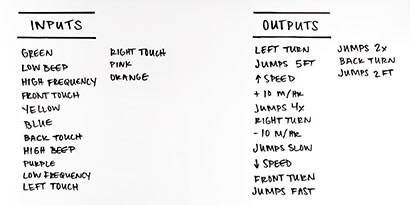 INPUTS
GREEN
LOW BEEP
HIGH FREQUENCY
FRONT TOUCH
YELLOW
BLUE
BACK TOUCH
HIGH BEEP
PURPLE
LOW FREQUENCY
LEFT TOUCH
RIGHT TOUCH
PINK
ORANGE
OUTPUTS
LEFT TURN
JUMPS 5FT
↑ SPEED
+10 M/HR
JUMPS 4x
RIGHT TURN
-10 M/HR
JUMPS SLOW
↓ SPEED
FRONT TURN
JUMPS FAST
JUMPS 2x
BACK TURN
JUMPS 2FT